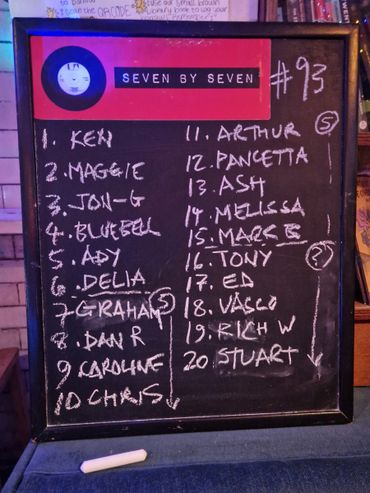 SEVEN BY SEVEN
#93
1. KEN
2. MAGGIE
3. JON-G
4. BLUEBELL
5. ADY
6. DELIA
7 GRAHAM 5
8. DAN R
9 CAROLINE
10 CHRIS
11. ARTHUR 5
12. PANCETTA
13. ASH
14. MELISSA
15. MARK B
16. TONY ?
17. ED
18. VASCO
19. RICH W
20 STUART